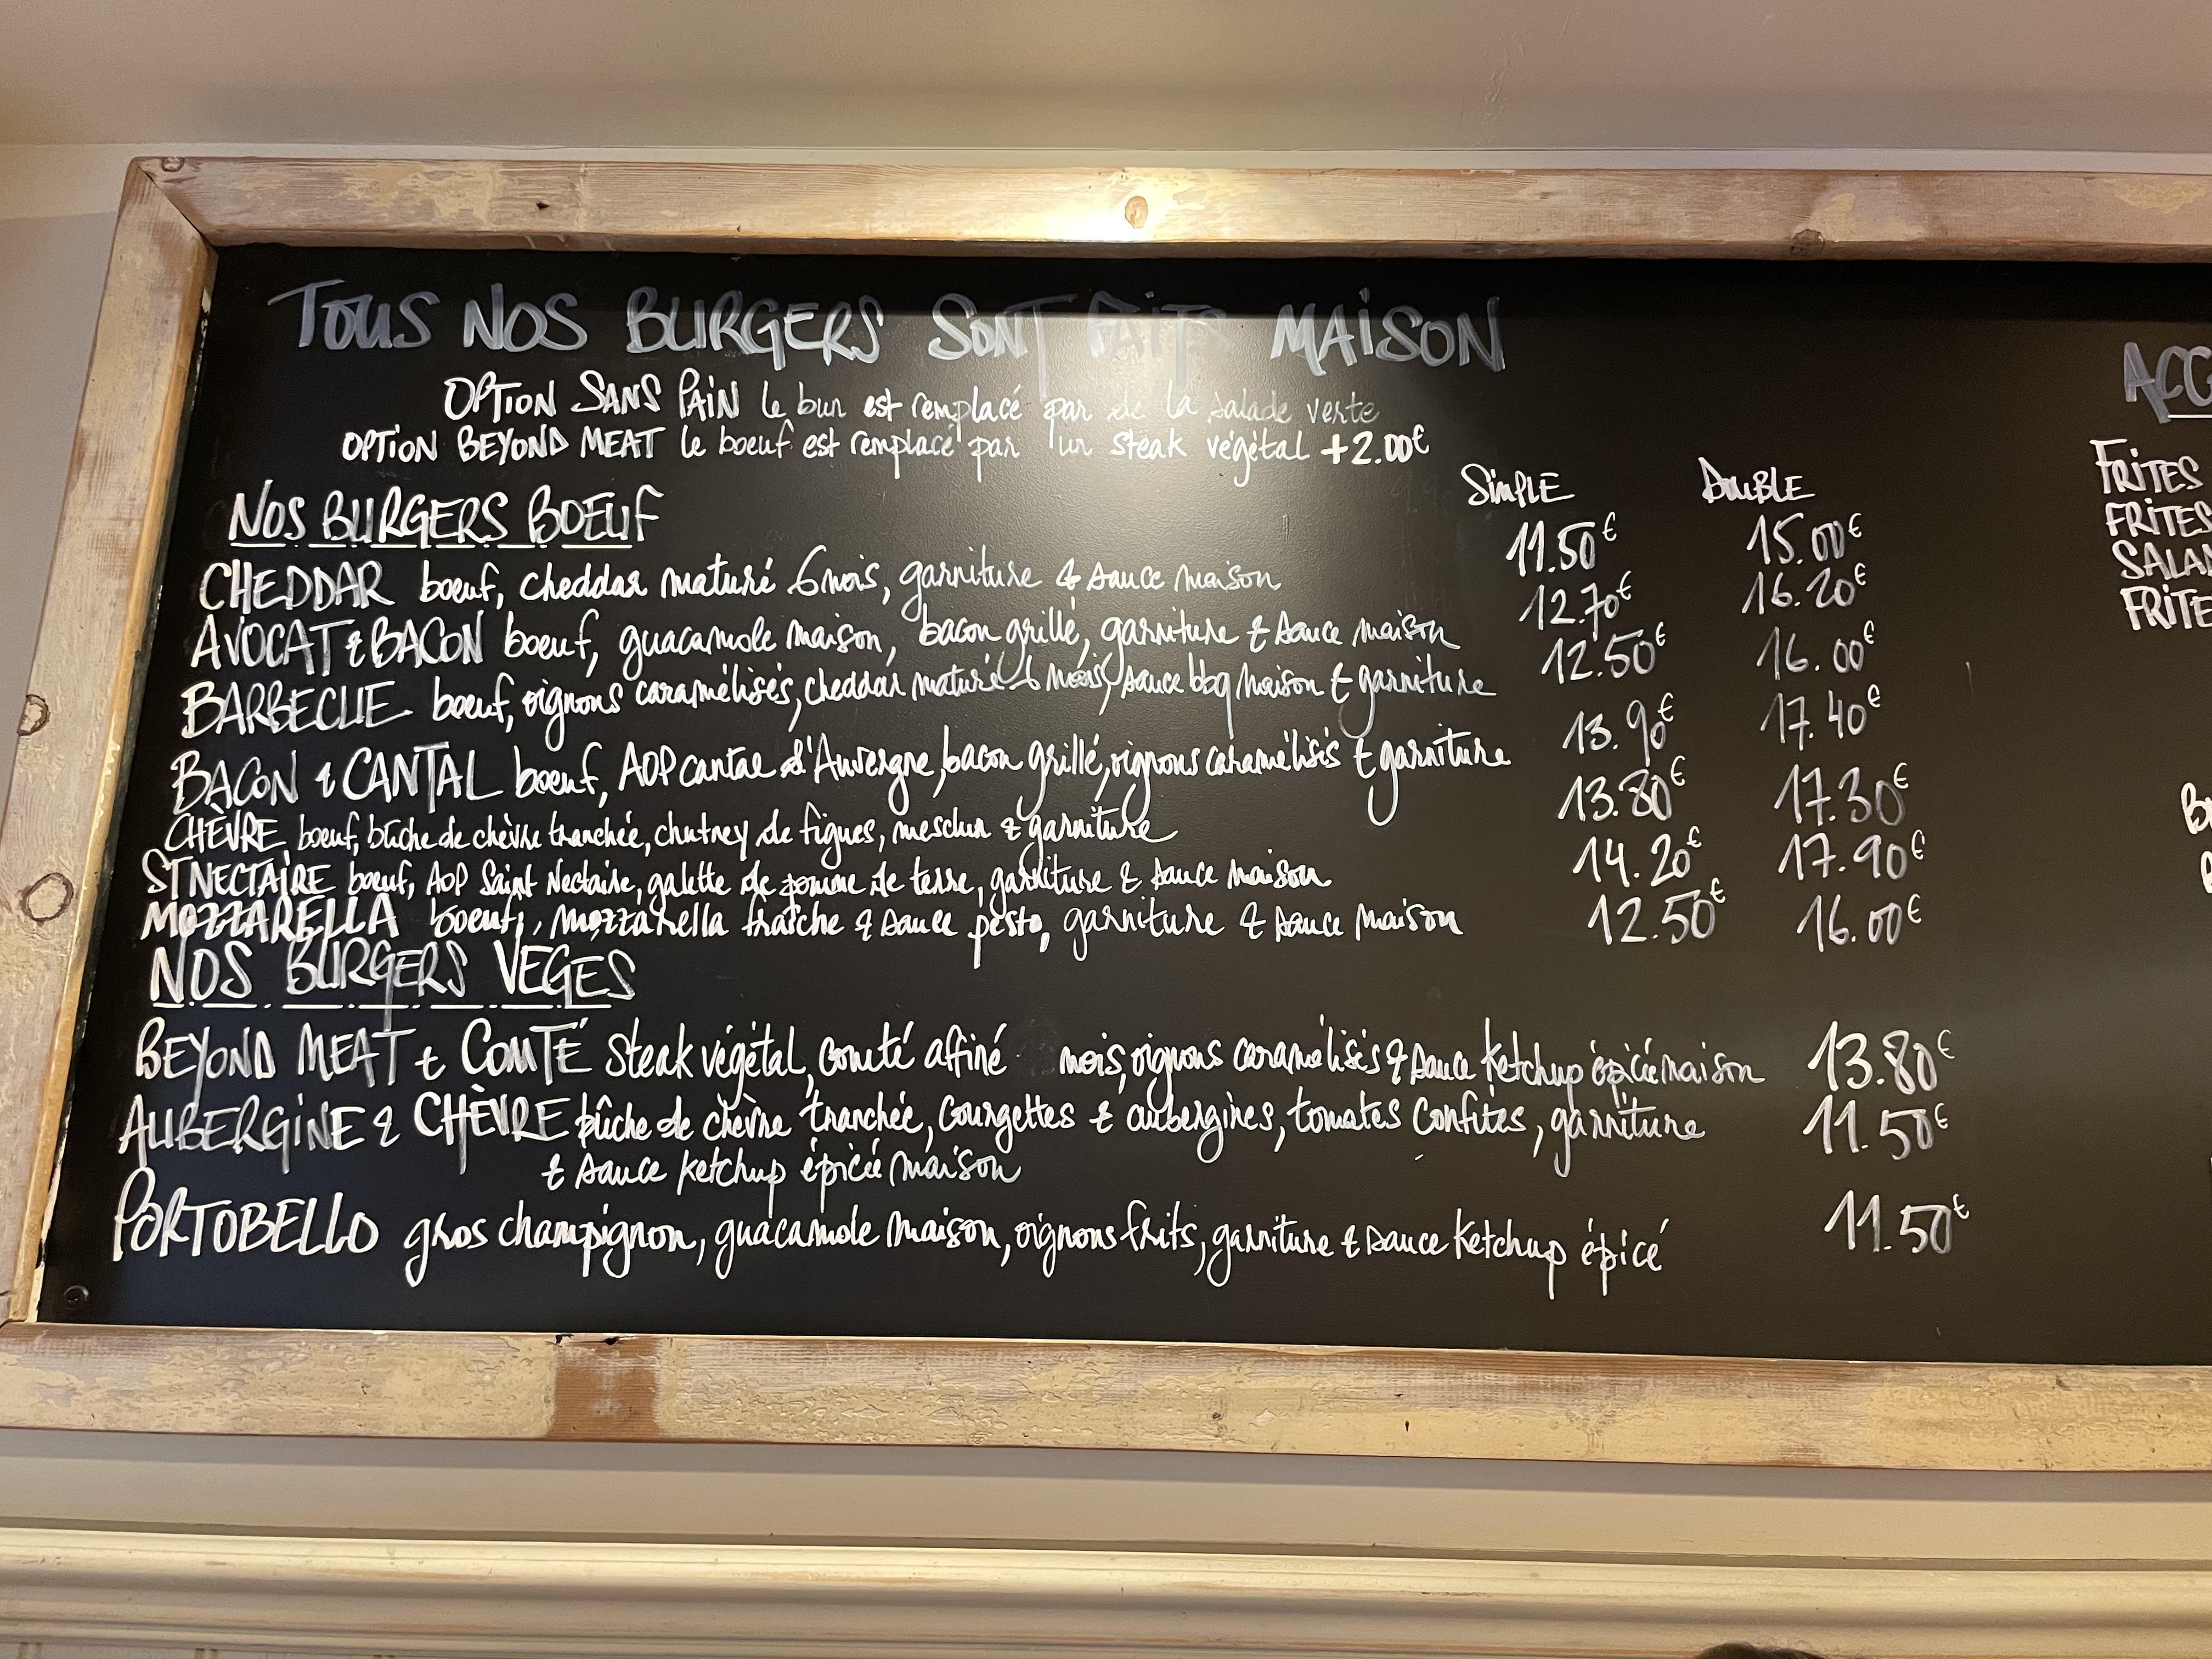 TOUS NOS BURGERS SONT FAITS MAISON
OPTION SANS PAIN le bun est remplacé par de la salade verte
OPTION BEYOND MEAT le boeuf est remplacé par un steak végétal +2.00€
SIMPLE DOUBLE
NOS BURGERS BOEUF
CHEDDAR boeuf, cheddar maturé 6 mois, garniture & sauce maison 11.50€ 15.00€
AVOCAT & BACON boeuf, guacamole maison, bacon grillé, garniture & sauce maison 12.70€ 16.20€
BARBECUE boeuf, oignons caramélisés, cheddar maturé 6 mois, sauce bbq maison & garniture 12.50€ 16.00€
BACON & CANTAL boeuf, AOP cantal d'Auvergne, bacon grillé, oignons caramélisés & garniture 13.90€ 17.40€
CHÈVRE boeuf, bûche de chèvre tranchée, chutney de figues, mesclun & garniture 13.80€ 17.30€
ST NECTAIRE boeuf, AOP Saint Nectaire, galette de pomme de terre, garniture & sauce maison 14.20€ 17.90€
MOZZARELLA boeuf, mozzarella fraîche & sauce pesto, garniture & sauce maison 12.50€ 16.00€
NOS BURGERS VEGES
BEYOND MEAT & COMTÉ steak végétal, comté affiné mois, oignons caramélisés & sauce ketchup épicée maison 13.80€
AUBERGINE & CHÈVRE bûche de chèvre tranchée, courgettes & aubergines, tomates confites, garniture 11.50€
& sauce ketchup épicée maison
PORTOBELLO gros champignon, guacamole maison, oignons frits, garniture & sauce ketchup épicé 11.50€
FRITES
FRITES